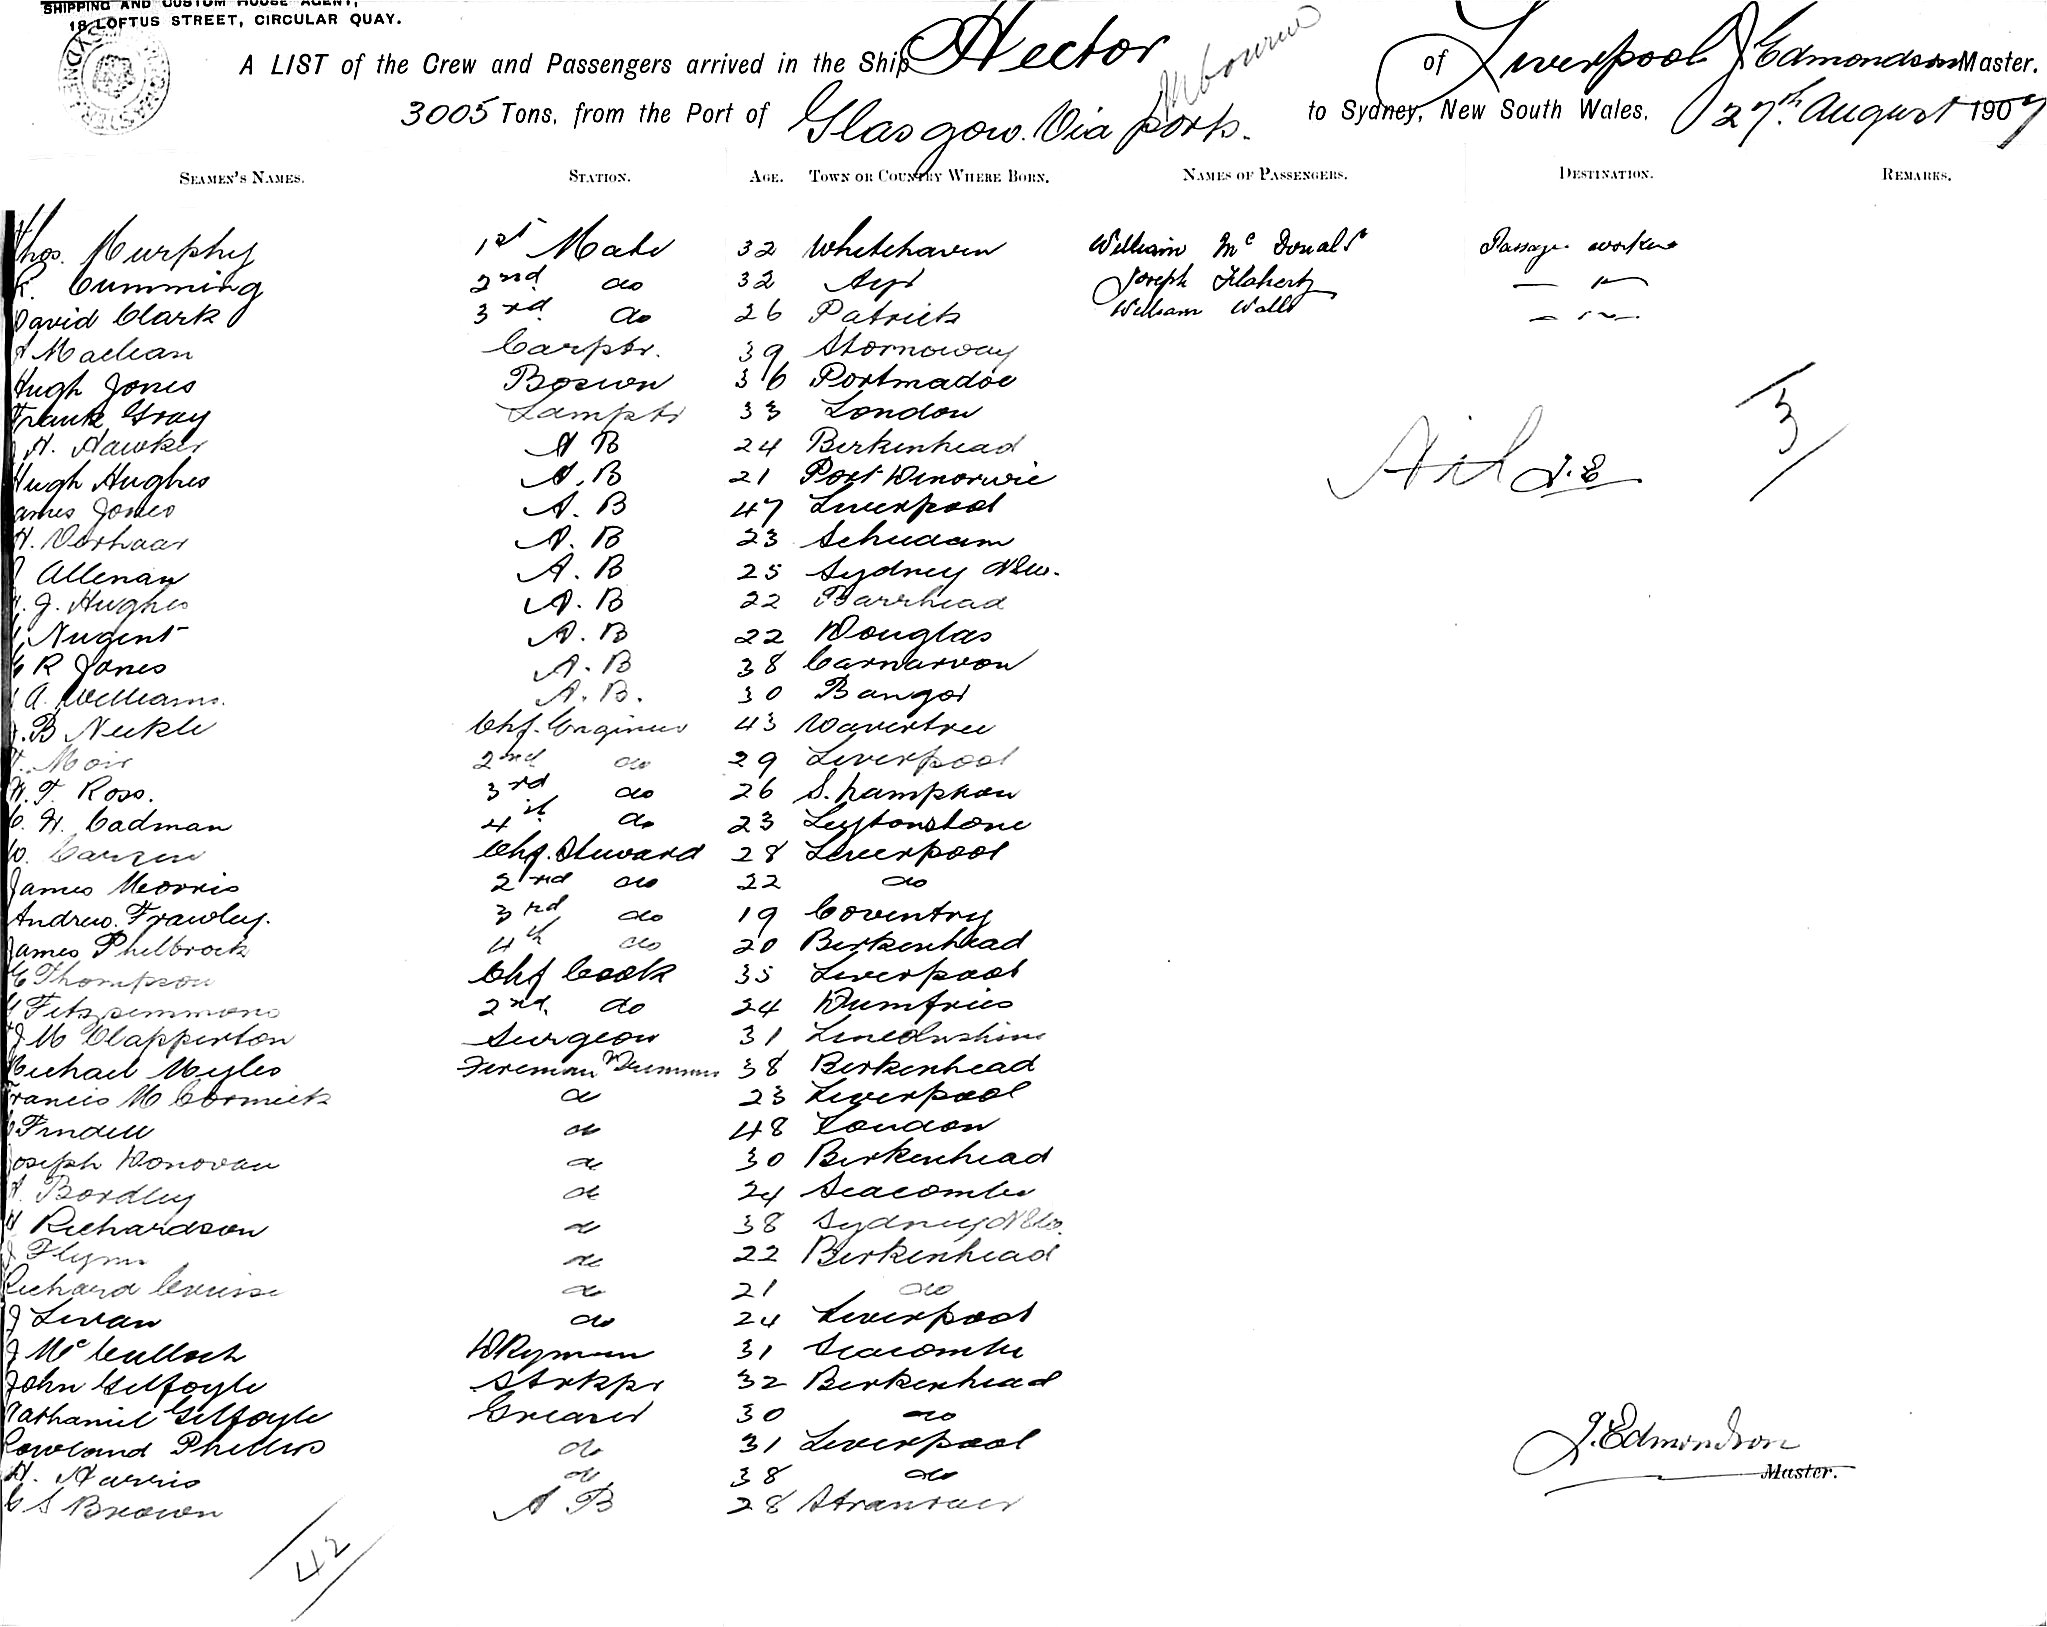 SHIPPING AND CUSTOM HOUSE AGENT,
18 LOFTUS STREET, CIRCULAR QUAY.
A LIST of the Crew and Passengers arrived in the Ship Hector of Liverpool J Edmondson Master.
Mbourne
3005 Tons, from the Port of Glasgow. Via ports. to Sydney, New South Wales, 27th August 1907
SEAMEN'S NAMES. STATION. AGE. TOWN OR COUNTRY WHERE BORN. NAMES OF PASSENGERS. DESTINATION. REMARKS.
Thos. Murphy 1st Mate 32 Whitehaven William Mc Donald Passage worker
R. Cumming 2nd do 32 Ayr Joseph Flaherty
David Clark 3rd do 26 Patrick William Walls
Maclean Carptr. 39 Stornoway
Hugh Jones Boswn 36 Portmadoc
Frank Gray Lamptr 33 London 3
J H. Hawker A B 24 Birkenhead
Hugh Hughes A. B 21 Port Dinorwic Nil J.E
James Jones A. B 47 Liverpool
H. Verhaar A. B 23 Schiedam
J Allenan A. B 25 Sydney NSW.
J. Hughes A. B 22 Barrhead
Nugent A. B 22 Douglas
R Jones A. B 38 Carnarvon
A. Williams. A. B. 30 Bangor
J. B Neekle Chf. Engineer 43 Wavertree
Moir 2nd do 29 Liverpool
T. Ross. 3rd do 26 S.hampton
C. H. Cadman 4th do 23 Leytonstone
Chf. Steward 28 Liverpool
James Morris 2nd do 22 do
Andrew. Frawley. 3rd do 19 Coventry
James Philbrock 4th do 20 Birkenhead
Thompson Chf Cook 35 Liverpool
Fitzsimmons 2nd. do 24 Dumfries
J M Clapperton Surgeon 31 Lincolnshire
Michael Myles Fireman Trimmer 38 Birkenhead
Francis McCormick do 23 Liverpool
do 48 London
Joseph Donovan do 30 Birkenhead
Bordley do 24 Seacombe
Richardson do 38 Sydney NSW.
J Flynn do 22 Birkenhead
Richard do 21 do
J Levan do 24 Liverpool
J Mc Culloch DKyman 31 Seacombe
John Gilfoyle Strkpr 32 Birkenhead
Nathaniel Gilfoyle Greaser 30 do
Rowland Phillips do 31 Liverpool
H. Harris do 38 do
S Brown A B 28 Stranraer
J. Edmondson
Master.
42